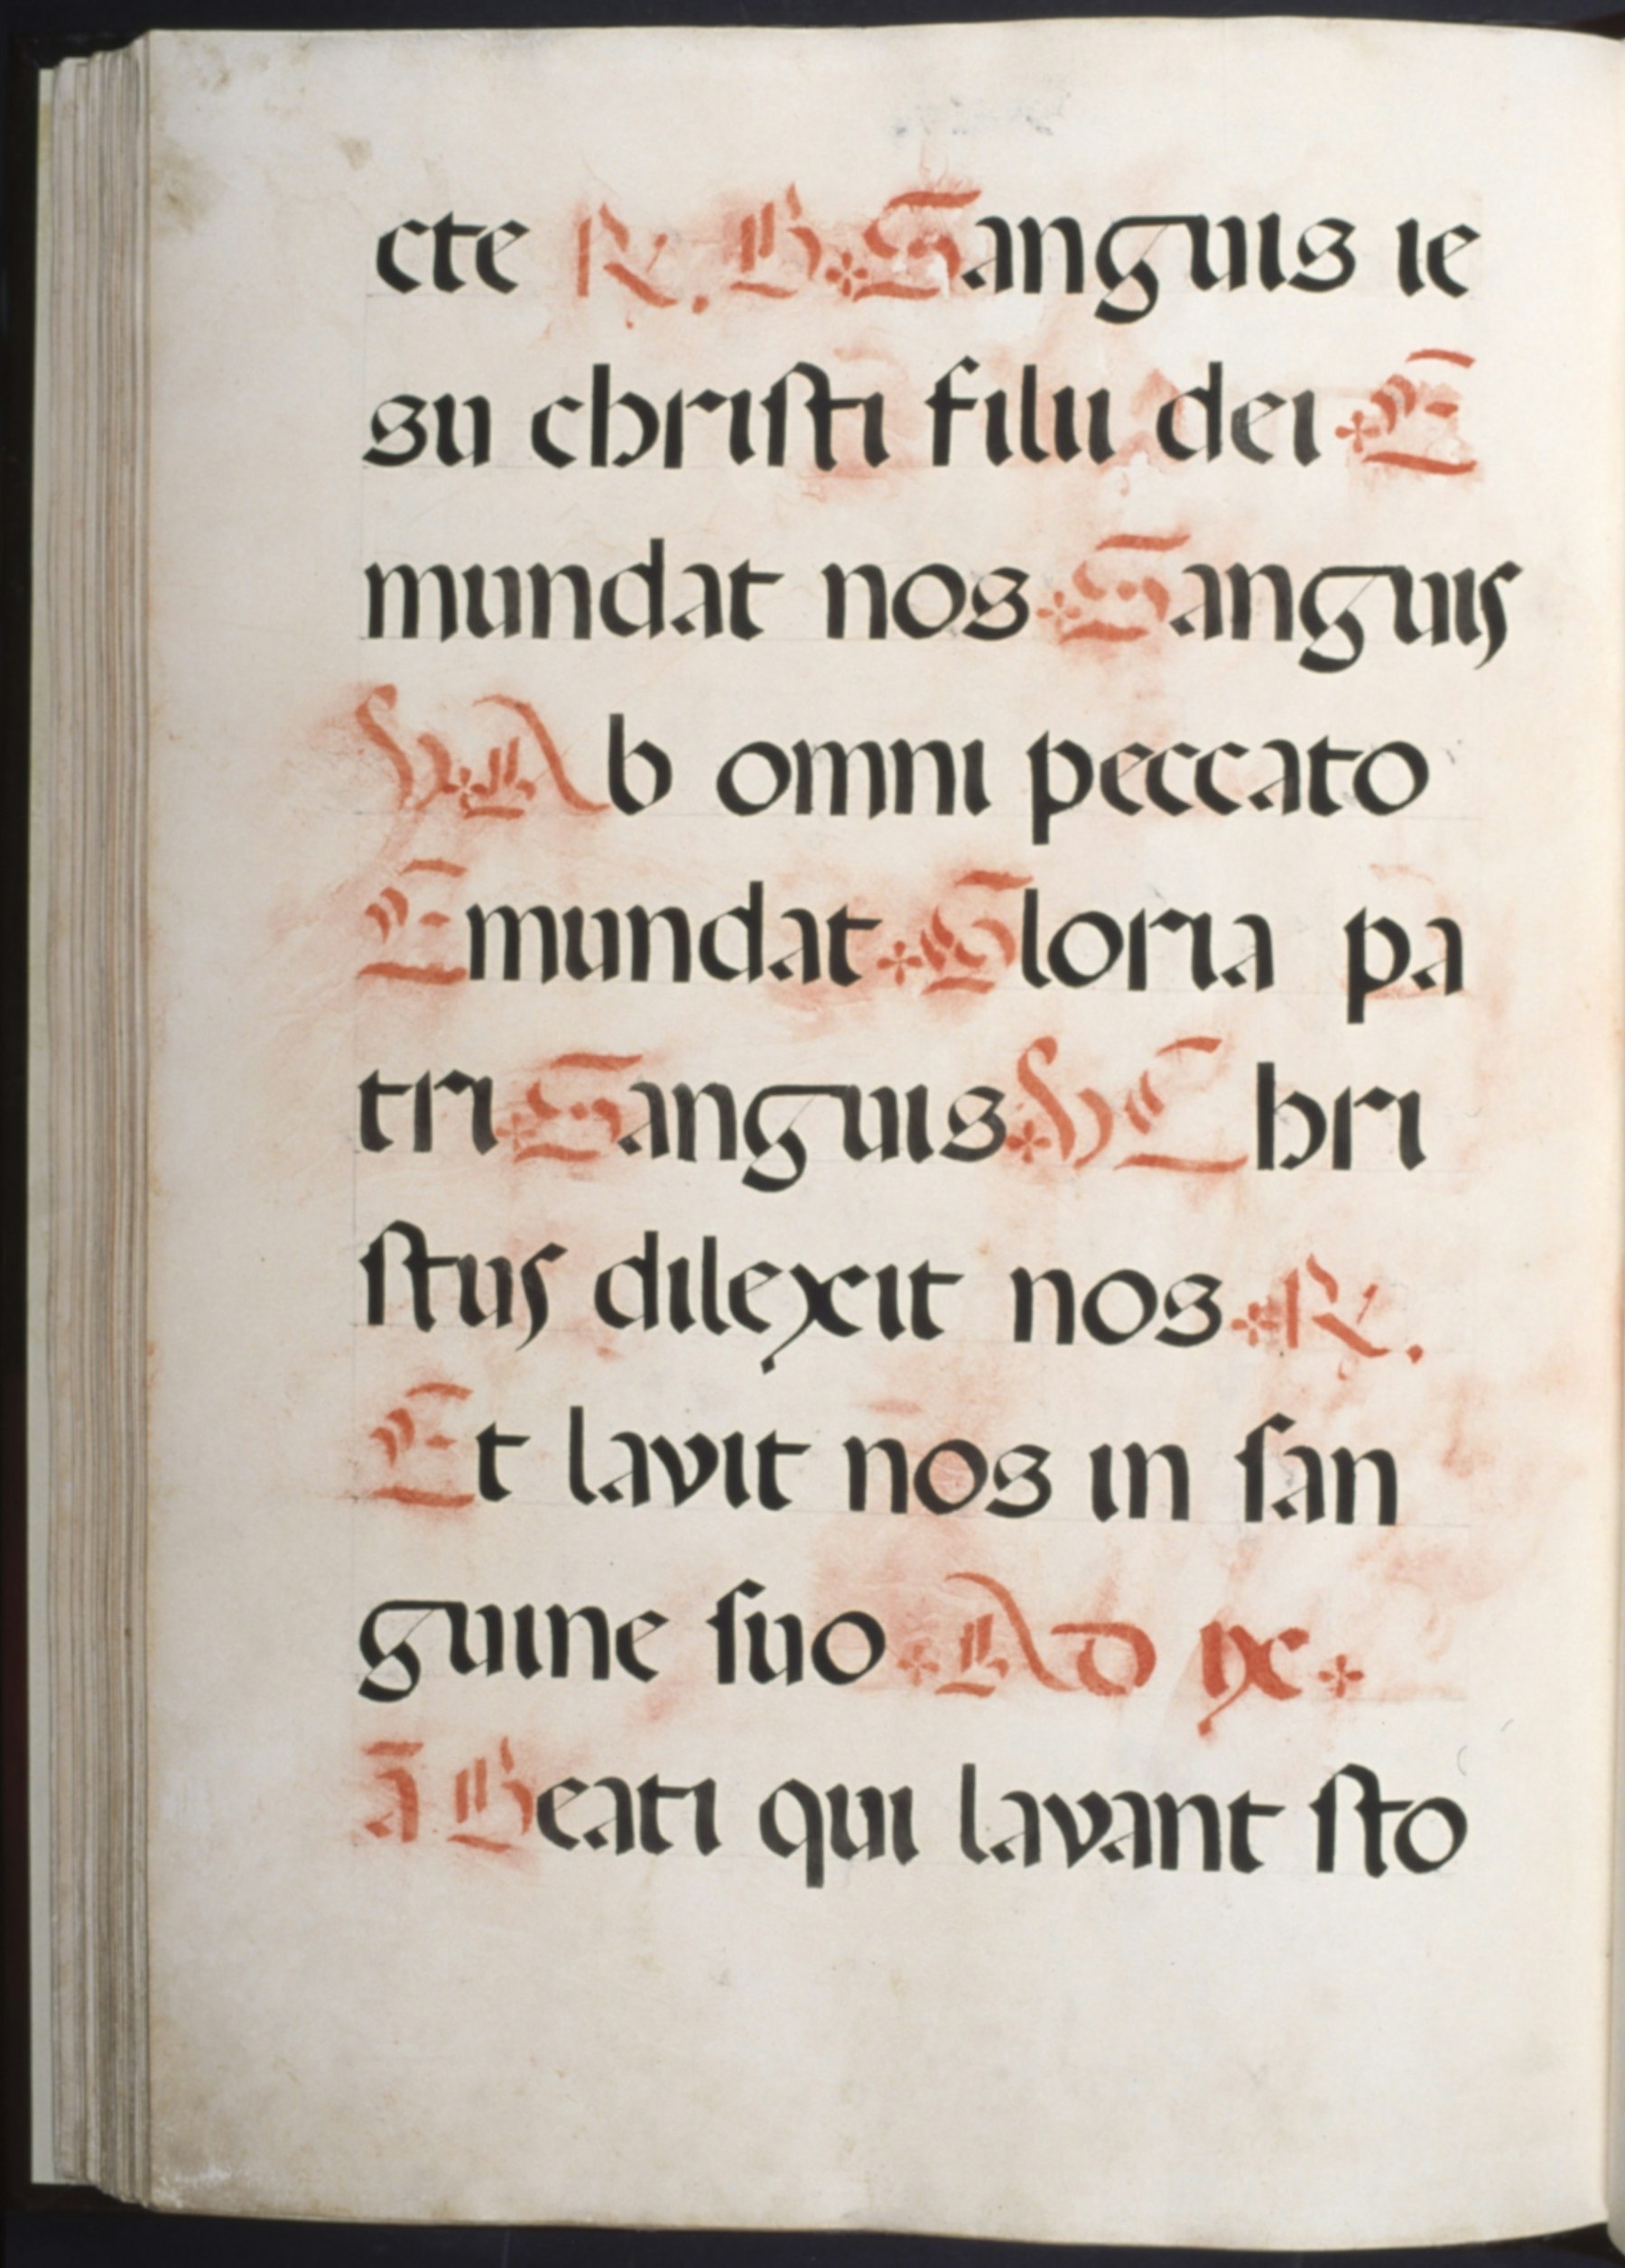 cte R. B. Sanguis ie
su christi filii dei E
mundat nos Sanguis
V Ab omni peccato
Emundat Gloria pa
tri Sanguis V Chri
stus dilexit nos R.
Et lavit nos in san
guine suo Ad ix.
ā Beati qui lavant sto